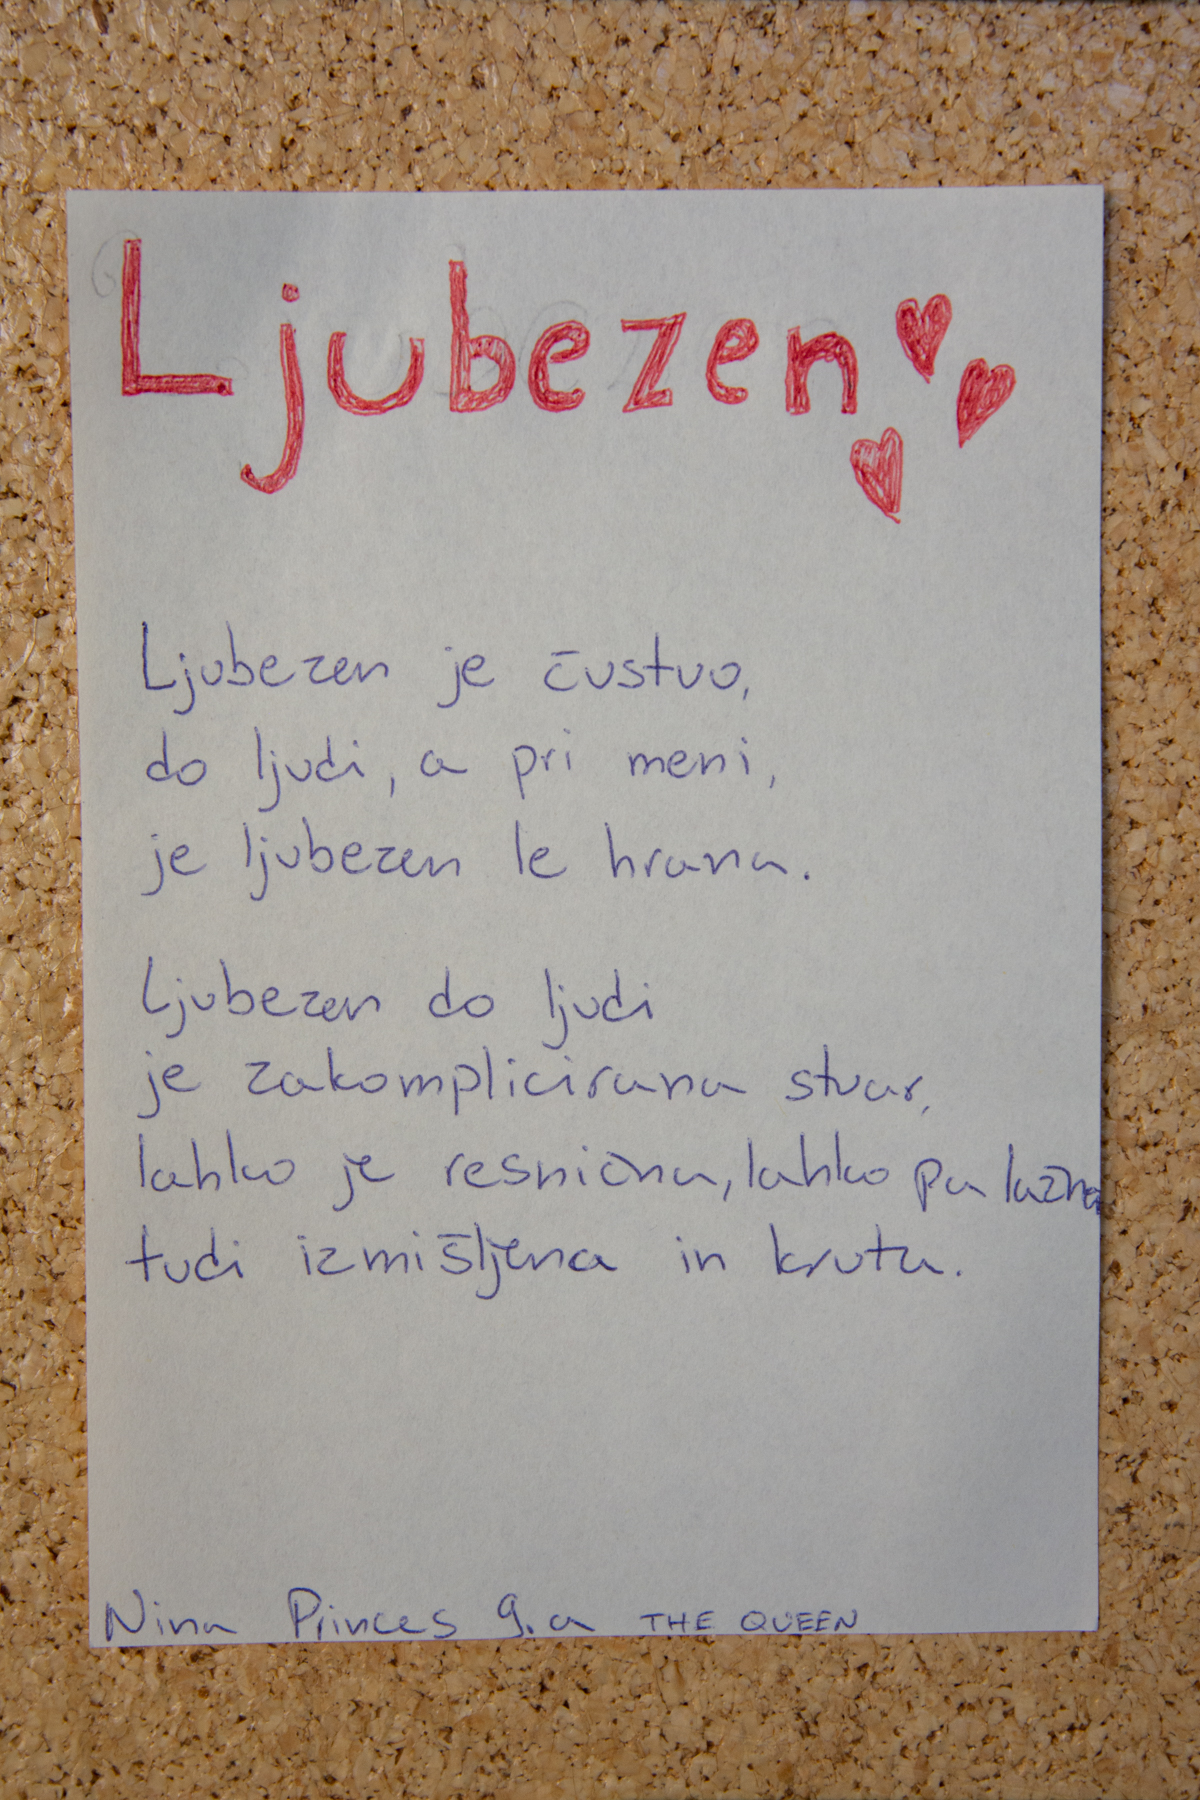 Ljubezen
Ljubezen je čustvo,
do ljudi, a pri meni,
je ljubezen le hrana.
Ljubezen do ljudi
je zakomplicirana stvar,
lahko je resnična, lahko pa lažna
tudi izmišljena in kruta.
Nina Princes 9.a THE QUEEN